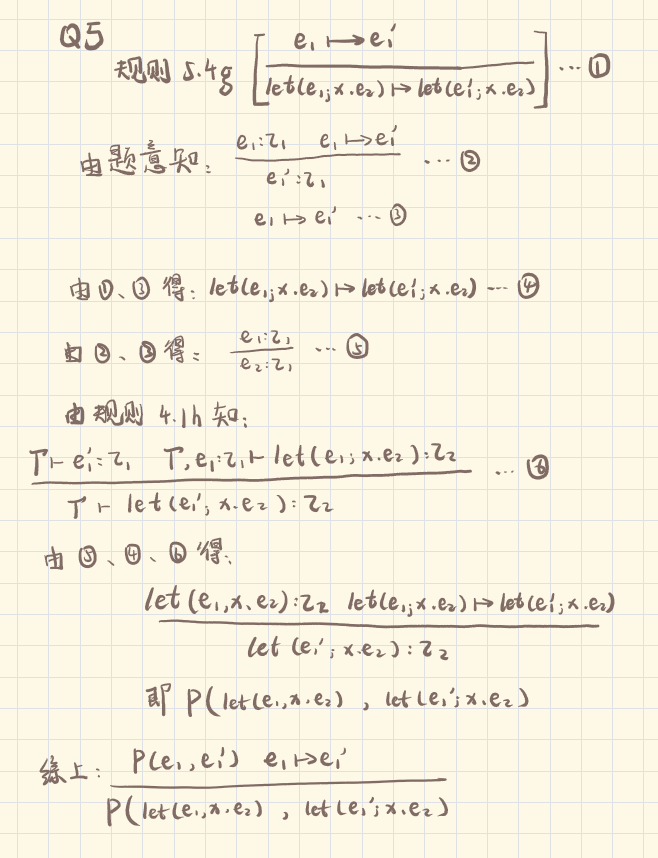 Q5
规则 5.4g [ e₁ ↦ e₁' / let(e₁; x.e₂) ↦ let(e₁'; x.e₂) ] ... ①
由题意知: e₁:τ₁ e₁ ↦ e₁' / e₁':τ₁ ... ②
e₁ ↦ e₁' ... ③
由①、③得: let(e₁; x.e₂) ↦ let(e₁'; x.e₂) ... ④
由②、③得: e₁:τ₁ / e₂:τ₁ ... ⑤
由规则 4.1h 知:
Γ ⊢ e₁':τ₁ Γ, e₁:τ₁ ⊢ let(e₁; x.e₂):τ₂ / Γ ⊢ let(e₁'; x.e₂):τ₂ ... ⑥
由⑤、④、⑥得:
let(e₁, x.e₂):τ₂ let(e₁; x.e₂) ↦ let(e₁'; x.e₂)
let(e₁'; x.e₂):τ₂
即 P(let(e₁, x.e₂), let(e₁'; x.e₂)
综上: P(e₁, e₁') e₁ ↦ e₁' / P(let(e₁, x.e₂), let(e₁'; x.e₂)